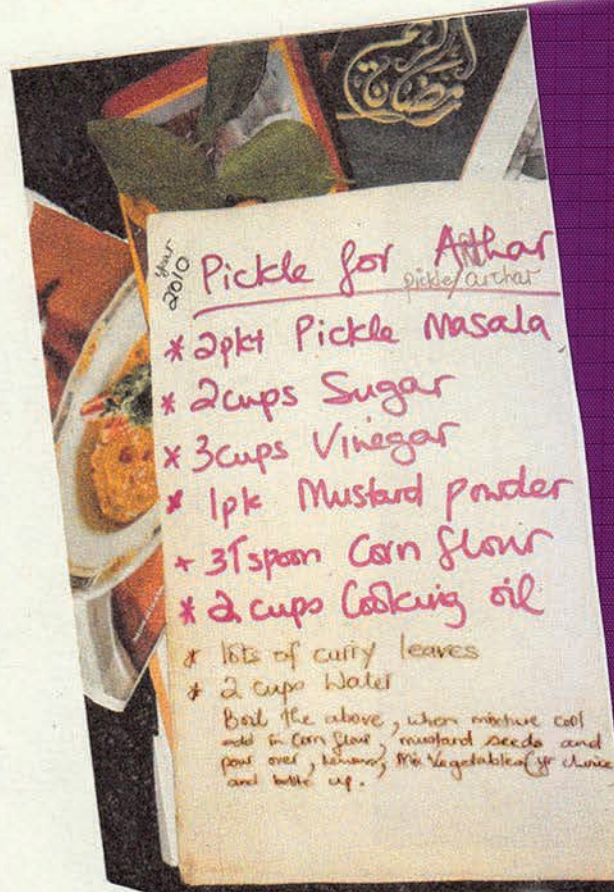 رمضان
الكريم
year
2010
Pickle for Atthar
pickle/arthar
* 2pkt Pickle Masala
* 2cups Sugar
* 3cups Vinegar
* 1pk Mustard powder
* 3Tspoon Corn flour
* 2 cups Cooking oil
* lots of curry leaves
* 2 cups Water
Boil the above, when mixture cool
add in Corn flour, mustard seeds and
pour over, lemons, Mix Vegetables of yr choice
and bottle up.